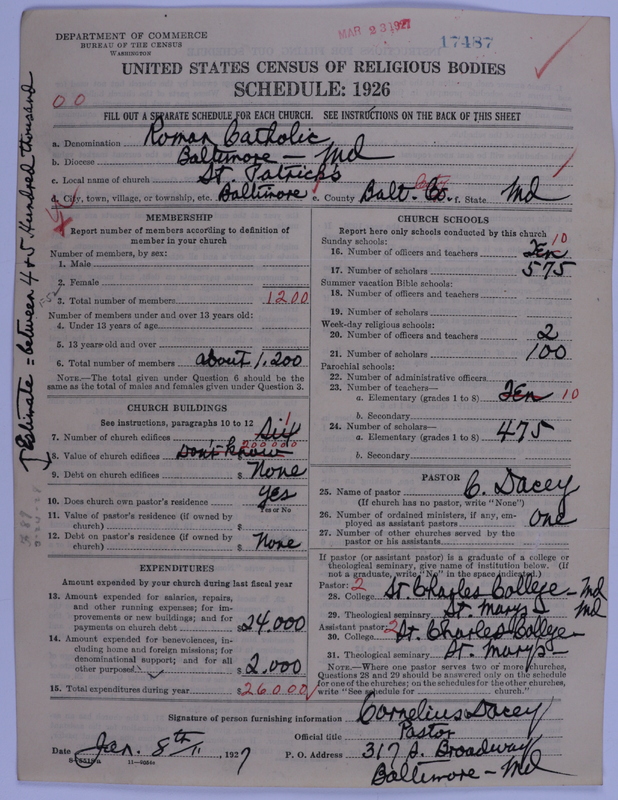 DEPARTMENT OF COMMERCE
BUREAU OF THE CENSUS
WASHINGTON
MAR 23 1927
17487
UNITED STATES CENSUS OF RELIGIOUS BODIES
SCHEDULE: 1926
FILL OUT A SEPARATE SCHEDULE FOR EACH CHURCH. SEE INSTRUCTIONS ON THE BACK OF THIS SHEET
a. Denomination Roman Catholic
b. Diocese Baltimore - Md
c. Local name of church St. Patrick's
d. City, town, village, or township, etc. Baltimore e. County Balt. Co. f. State Md
MEMBERSHIP
Report number of members according to definition of
member in your church
Number of members, by sex:
1. Male
2. Female
3. Total number of members 1200
Number of members under and over 13 years old:
4. Under 13 years of age
5. 13 years old and over
6. Total number of members about 1,200
NOTE.—The total given under Question 6 should be the
same as the total of males and females given under Question 3.
CHURCH BUILDINGS
See instructions, paragraphs 10 to 12
7. Number of church edifices Six 1
8. Value of church edifices Don't know
9. Debt on church edifices $ None
10. Does church own pastor's residence yes
Yes or No
11. Value of pastor's residence (if owned by
church) $
12. Debt on pastor's residence (if owned by
church) $ None
EXPENDITURES
Amount expended by your church during last fiscal year
13. Amount expended for salaries, repairs,
and other running expenses; for im-
provements or new buildings; and for
payments on church debt $24.000
14. Amount expended for benevolences, in-
cluding home and foreign missions; for
denominational support; and for all
other purposes $2.000
15. Total expenditures during year $26000
CHURCH SCHOOLS
Report here only schools conducted by this church
Sunday schools:
16. Number of officers and teachers Ten 10
17. Number of scholars 575
Summer vacation Bible schools:
18. Number of officers and teachers
19. Number of scholars
Week-day religious schools:
20. Number of officers and teachers 2
21. Number of scholars 100
Parochial schools:
22. Number of administrative officers
23. Number of teachers—
a. Elementary (grades 1 to 8) Ten 10
b. Secondary
24. Number of scholars—
a. Elementary (grades 1 to 8) 475
b. Secondary
PASTOR
25. Name of pastor C. Dacey
(If church has no pastor, write "None")
26. Number of ordained ministers, if any, em-
ployed as assistant pastors one
27. Number of other churches served by the
pastor or his assistants
If pastor (or assistant pastor) is a graduate of a college or
theological seminary, give name of institution below. (If
not a graduate, write "No" in the space indicated.)
Pastor: 2
28. College St. Charles College - Md
29. Theological seminary St. Marys Md
Assistant pastor: 2
30. College St. Charles College -
31. Theological seminary St. Marys -
NOTE.—Where one pastor serves two or more churches,
Questions 28 and 29 should be answered only on the schedule
for one of the churches; on the schedules for the other churches,
write "See schedule for church."
Signature of person furnishing information Cornelius Dacey
Official title Pastor
Date Jan. 8th, 1927 P. O. Address 317 S. Broadway
Baltimore - Md
11-9054a
Estimate = between 4 & 5 Hundred thousand